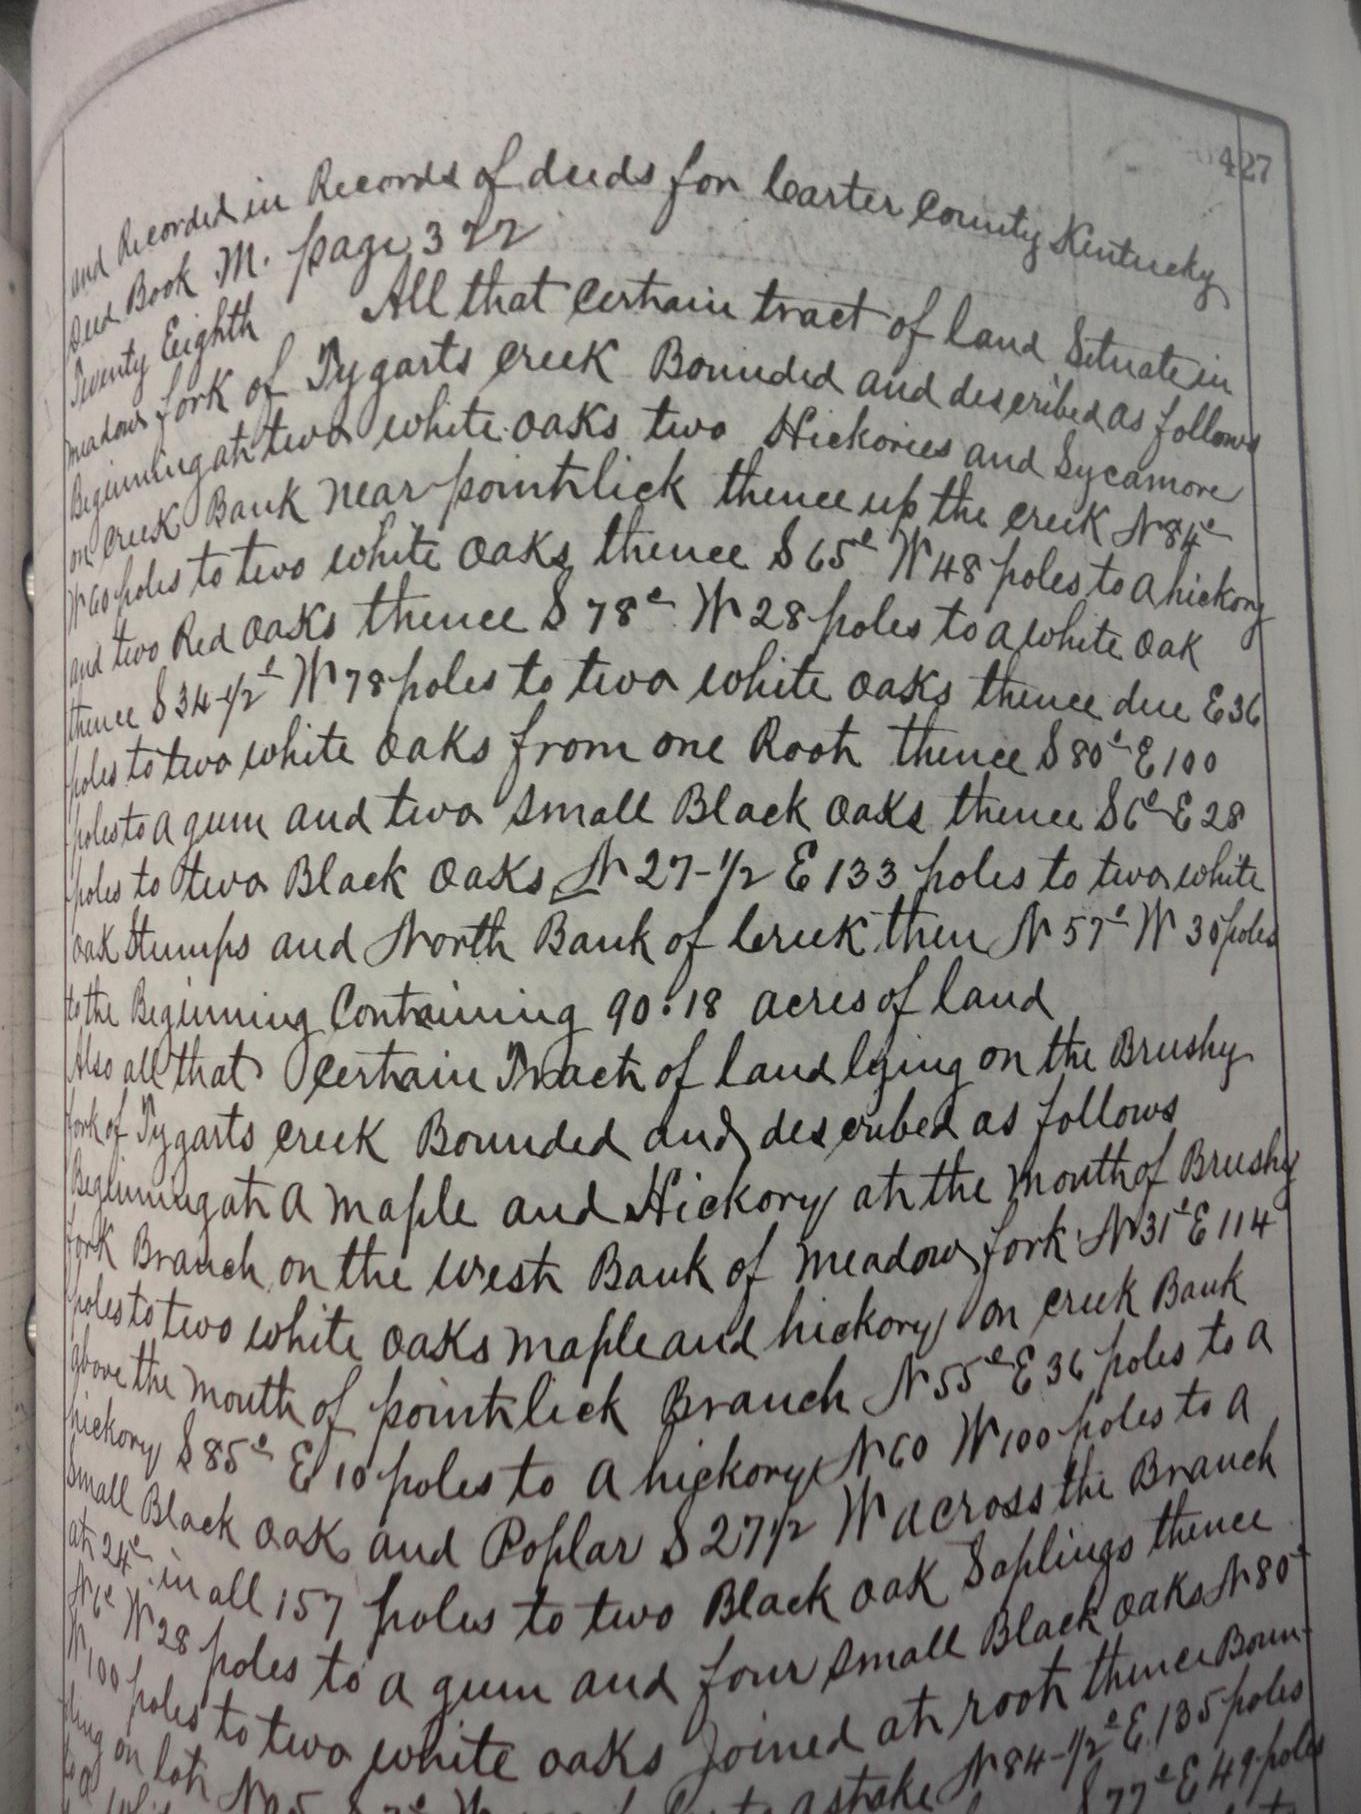 427
and Recorded in Records of deeds for Carter County Kentucky
Deed Book M. page 322
Twenty Eighth All that Certain tract of land Situate in
meadow fork of Tygarts creek Bounded and described as follows
Beginning at two white oaks two Hickories and Sycamore
on creek Bank near point lick thence up the creek N 84°
W 60 poles to two white oaks thence S 65° W 48 poles to a hickory
and two Red oaks thence S 78° W 28 poles to a white oak
thence S 34-1/2° W 78 poles to two white oaks thence due E 36
poles to two white oaks from one Root thence S 80° E 100
poles to a gum and two small Black oaks thence S 6° E 28
poles to two Black oaks N 27-1/2 E 133 poles to two white
oak Stumps and North Bank of Creek then N 57° W 30 poles
to the Beginning Containing 90.18 acres of land
Also all that Certain Tract of land lying on the Brushy
fork of Tygarts creek Bounded and described as follows
Beginning at a maple and Hickory at the mouth of Brushy
fork Branch on the west Bank of meadow fork N 31° E 114
poles to two white oaks maple and hickory on creek Bank
above the mouth of point lick Branch N 55° E 36 poles to a
hickory S 85° E 10 poles to a hickory N 60 W 100 poles to a
small Black oak and Poplar S 27 1/2 W across the Branch
at 24° in all 157 poles to two Black oak Saplings thence
N 6° W 28 poles to a gum and four small Black oaks N 80°
W 100 poles to two white oaks joined at root thence Boun-
ding on lot N 84-1/2° E 135 poles
to a stake S 77° E 49 poles